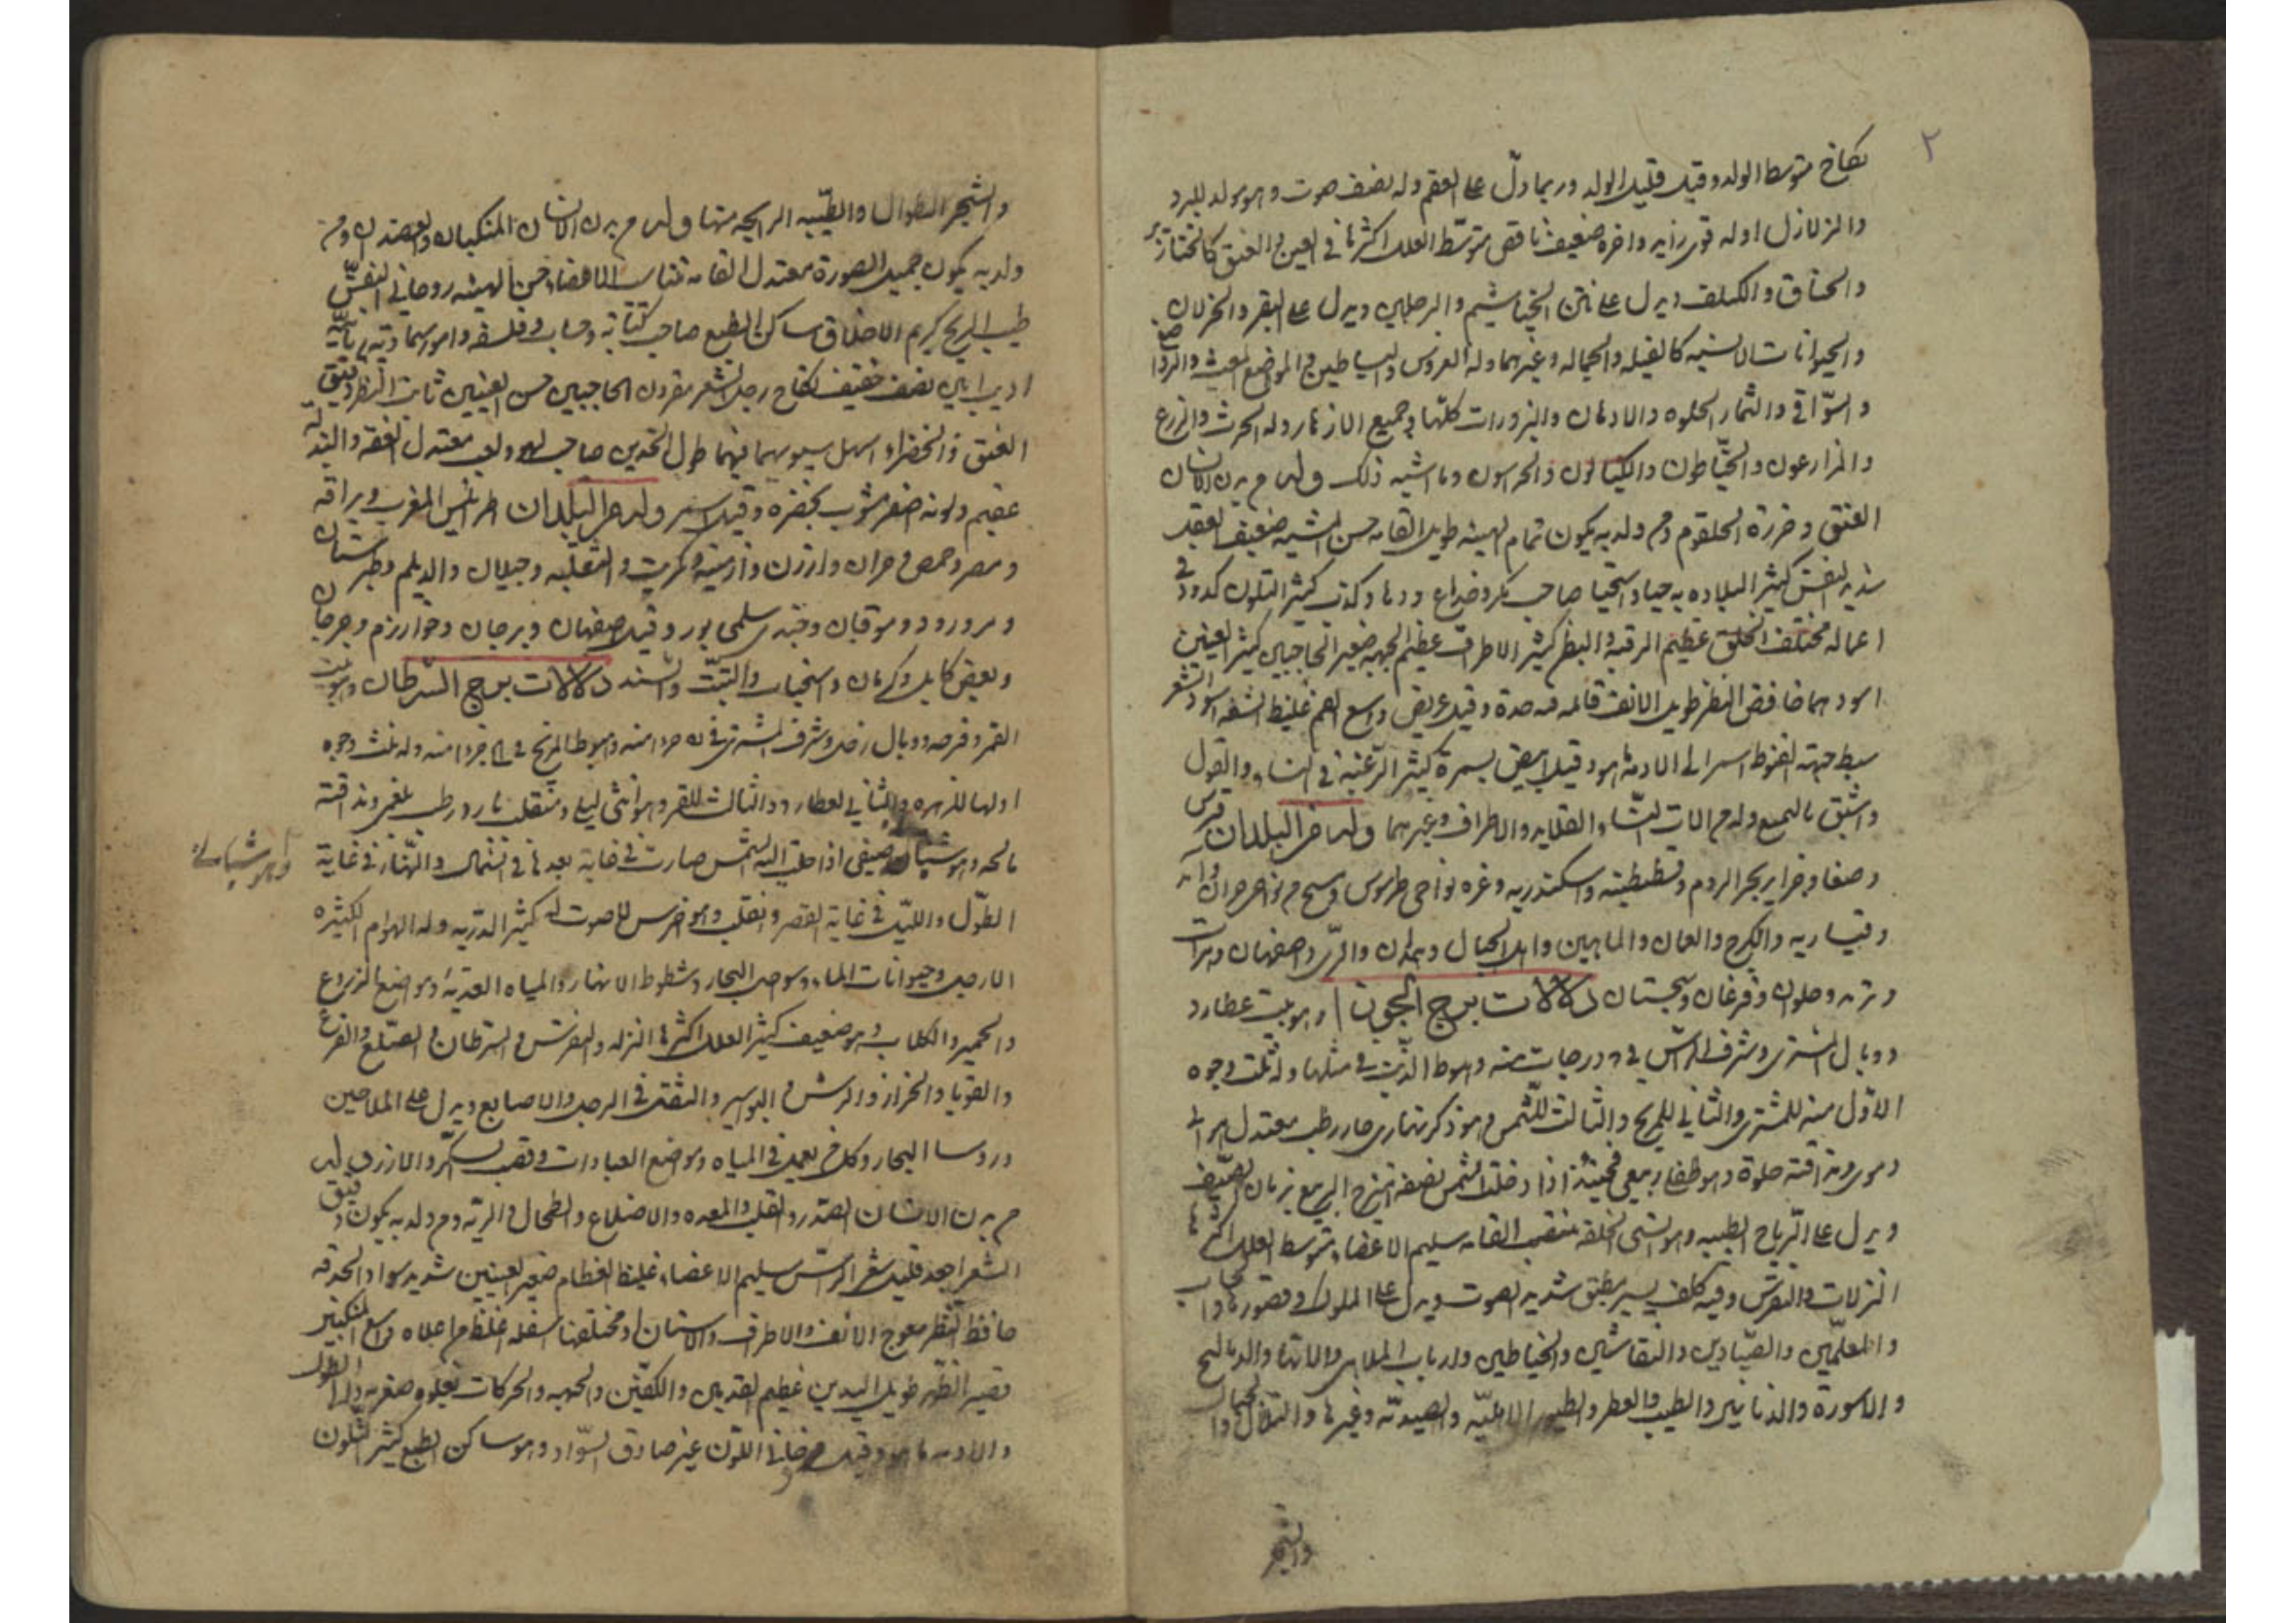 ٢
نكاح متوسط الولد وقيل قليل الولد وربما دلّ على العقم وله نصف صوت وهو مولد للبرد
والزلازل اوله قوي زايد واخره ضعيف ناقص متوسّط العلل اكثرها في العين والعنق كالخنازير
والخناق والكلف ويدل على نتن الخياشيم والرجلين ويدل على البقر والغزلان
والحيوانات الانسيه كالفيله والجماله وغيرهما وله الغروس والبساطين والمواضع
والسواقي والثمار الحلوه والادهان والبزورات كلّها وجميع الازهار وله الحرث والزرع
والمزارعون والخيّاطون والكيالون والحراسون وما اشبه ذلك وله من بدن الانسان
العنق وخرزة الحلقوم ومن ولد به يكون تمام الهيئه طويل القامه حسن المشيه ضعيف العقل
النفس كثير البلاده به حيا واستحيا صاحب مكر وخداع ودها وكذب كثير التلون كدود في
اعماله مختلف الخلق عظيم الرقبة والبظر كثير الاطراف عظيم الجبهه صغير الحاجبين كثير العينين
اسودهما خافض النظر طويل الانف قايمه فيه حدة وقيل عريض واسع الفم غليظ الشفه اسود الشعر
سبط اسمر الى الادمه ما هو وقيل ابيض بسمرة كثير الرغبة في النساء والقول
وله من الات النساء والقلايد والاطراف وغيرهما وله من البلدان قبرس
وجزاير بحر الروم وقسطنطينه واسكندريه وغزه نواحي طرسوس
وقيساريه والكرج والعمان والماهين واهل الجبال وهمدان والري واصفهان وهرات
وحلوان وفرغان وسجستان دلالات برج الجوزا وهو بيت عطارد
ووبال المشتري وشرف الراس في درجات منه وهبوط الذنب في مثلها وله ثلث وجوه
الاول منه للمشتري والثاني للمريخ والثالث للشمس وهو ذكر نهاري حار رطب معتدل هوائي
دموي مذاقته حلوة وهو ربيعي اذا دخلت الشمس نصفه امتزج الربيع بزمان الصيف
ويدل على الرياح الطيبه وهو انسي الخلقه منتصب القامه سليم الاعضاء متوسط العلل اكثرها
النزلات والنقرس وفيه كلف يسير شديد الصوت ويدل على الملوك وقصورها
والمعلّمين والصيّادين والنقاشين والخياطين وارباب الملاهي
والاسورة والدنانير والطيب والعطر والطيور وغيرها والتلال والجبال
والشجر
والشجر الطوال والطيّبه الرايحه منها وله من بدن الانسان المنكبان والعضدان ومن
ولد به يكون جميل الصورة معتدل القامه متناسب الاعضاء حسن الهيئه روحاني النفس
طيب الريح كريم الاخلاق ساكن الطبع صاحب كتابه وحساب وفلسفه وامور سماويه ربانيه
اديب خفيف نكاح رجل الشعر مقرون الحاجبين حسن العينين ثابت النظر دقيق
العنق طول الخدين صاحب لهو ولعب معتدل الفقه
عقيم ولونه اصفر مشوب بخضره وقيل اسمر وله من البلدان اطرابلس المغرب وبراقه
ومصر وحمص وحران وارزن وارمينه وتكريت وجيلان والديلم وطبرستان
ومرورود وموقان وقيل اصفهان وبرجان وخوارزم وجرجان
وبعض كابل وكرمان والتبت والسند دلالات برج السرطان وهو بيت
القمر وفرحه ووبال زحل وشرف المشتري في يه جزءا منه وهبوط المريخ في كح جزءا منه وله ثلث وجوه
اولها للزهره والثاني لعطارد والثالث للقمر وهو انثى ليلي ومنقلب بارد رطب بلغمي مذاقته
مالحه وهو شمالي صيفي اذا حلت اليه الشمس صارت في غاية بعدها في الشمال والنهار في غاية
وهو شمالي
الطول والليل في غاية القصر ومنقلب وهو اخرس لا صوت له كثير الذريه وله الهوام الكثيره
الارجل وحيوانات الماء وسواحل البحار وشطوط الانهار والمياه العذبه ومواضع الزروع
والحمير والكلاب وهو ضعيف كثير العلل اكثرها النزله والنقرس والسرطان والصلع والقرع
والقوبا والحزاز والبرش والبواسير والشقق في الرجل والاصابع ويدل على الملاحين
وروسا البحار وكل من يعمل في المياه ومواضع العبادات وقصب السكر والارز وله
من بدن الانسان الصدر والقلب والمعده والاضلاع والطحال والريه ومن ولد به يكون دقيق
الشعر اجعد قليل شعر الراس سليم الاعضاء غليظ العظام صغير العينين شديد سواد الحدقه
خافظ النظر معوج الانف والاطراف والاسنان او مختلفها اسفله اغلظ من اعلاه واسع المنكبين
قصير الظهر طويل اليدين عظيم القدمين والكفين والجبهه والحركات تعلوه صفره
والادمه ما هو وقيل اللون غير صادق السواد وهو ساكن الطبع كثير التلون